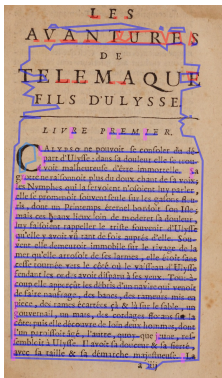 LES
AVANTURES
DE
TELEMAQUE
FILS D'ULYSSE.
LIVRE PREMIER.
CALYPSO ne pouvoit se consoler du dé-
part d'Ulysse: dans sa douleur elle se trou-
voit malheureuse d'être immortelle. Sa
grotte ne raisonnoit plus du doux chant de sa voix;
les Nymphes qui la servoient n'osoient luy parler,
elle se promenoit souvent seule sur les gasons fleu-
ris, dont un Printemps éternel bordoit son Isle:
mais ces beaux lieux loin de moderer sa douleur,
luy faisoient rappeller le triste souvenir d'Ulysse
qu'elle y avoit vû tant de fois auprés d'elle. Sou-
vent elle demeuroit immobile sur le rivage de la
mer qu'elle arrosoit de ses larmes, elle étoit sans
cesse tournée vers le côté où le vaisseau d'Ulysse
fendant les ondes avoit disparu à ses yeux. Tout à
coup elle apperçût les débris d'un navire qui venoit
de faire naufrage, des bancs, des rameurs mis en
piece, des rames écartées çà & là sur le sable, un
gouvernail, un mas, des cordages flotans à la
côte; puis elle découvre de loin deux hommes, dont
l'un paroissoit âgé, l'autre, quoy-que jeune, res-
sembloit à Ulysse. Il avoit sa douceur & sa fierté,
avec sa taille & sa démarche majestueuse. La